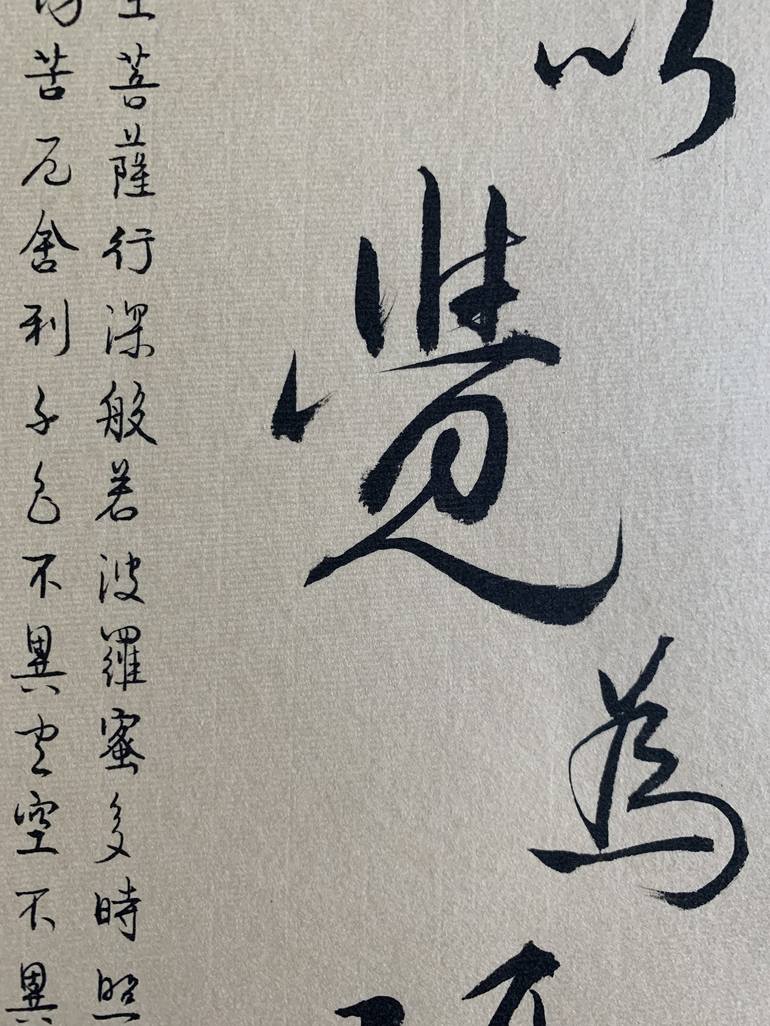 以覺為
菩薩行深般若波羅蜜多時照
苦厄舍利子色不異空空不異